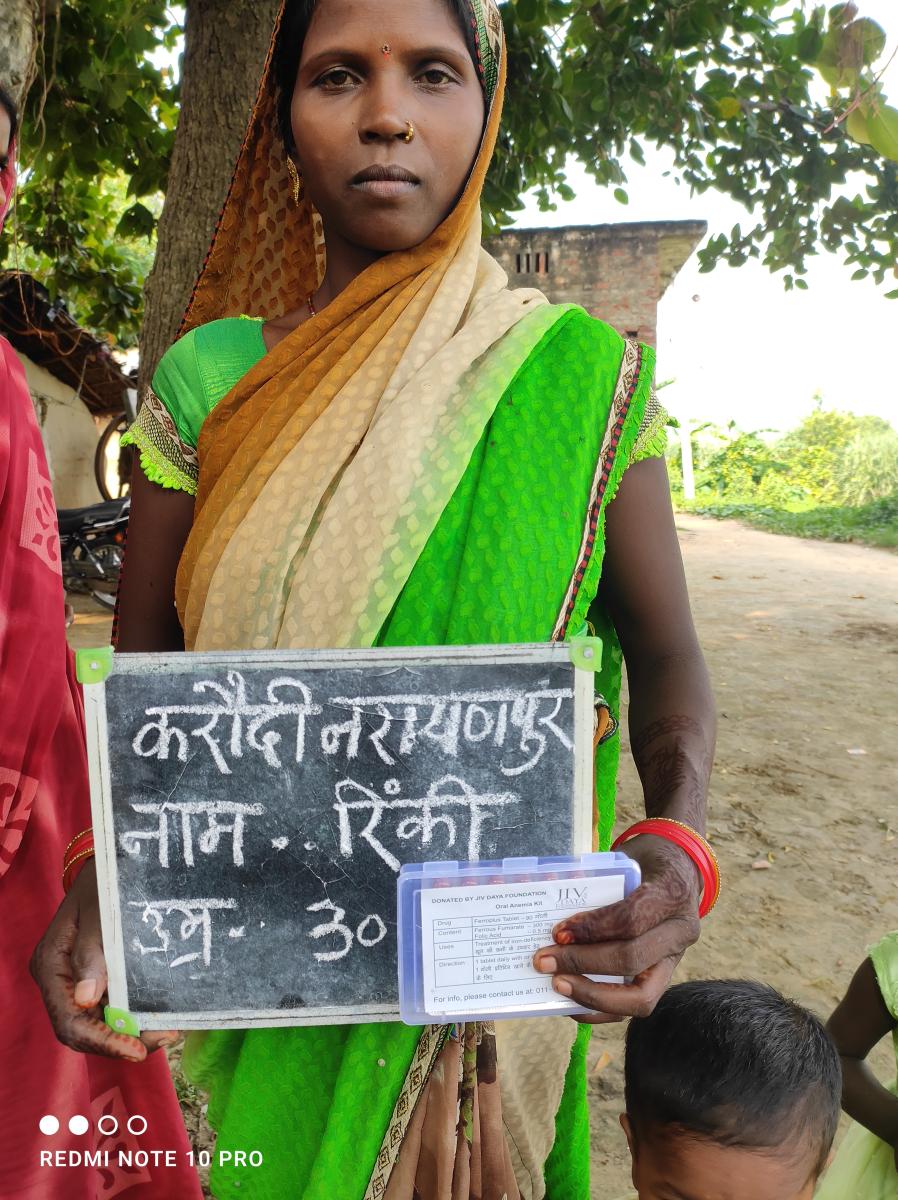 करौदी नरायणपुर
नाम . . रिंकी
उम्र . 30
DONATED BY JIV DAYA FOUNDATION
JIV DAYA
Oral Anemia Kit
Drug Ferroplus Tablet - 90 गोली
Content Ferrous Fumarate - 300 mg
Folic Acid - 0.5 mg
Uses Treatment of iron-deficiency
खून की कमी के उपचार हेतु
Direction 1 tablet daily with or
1 गोली प्रतिदिन खाने के
के लिए
For info, please contact us at: 011-
REDMI NOTE 10 PRO